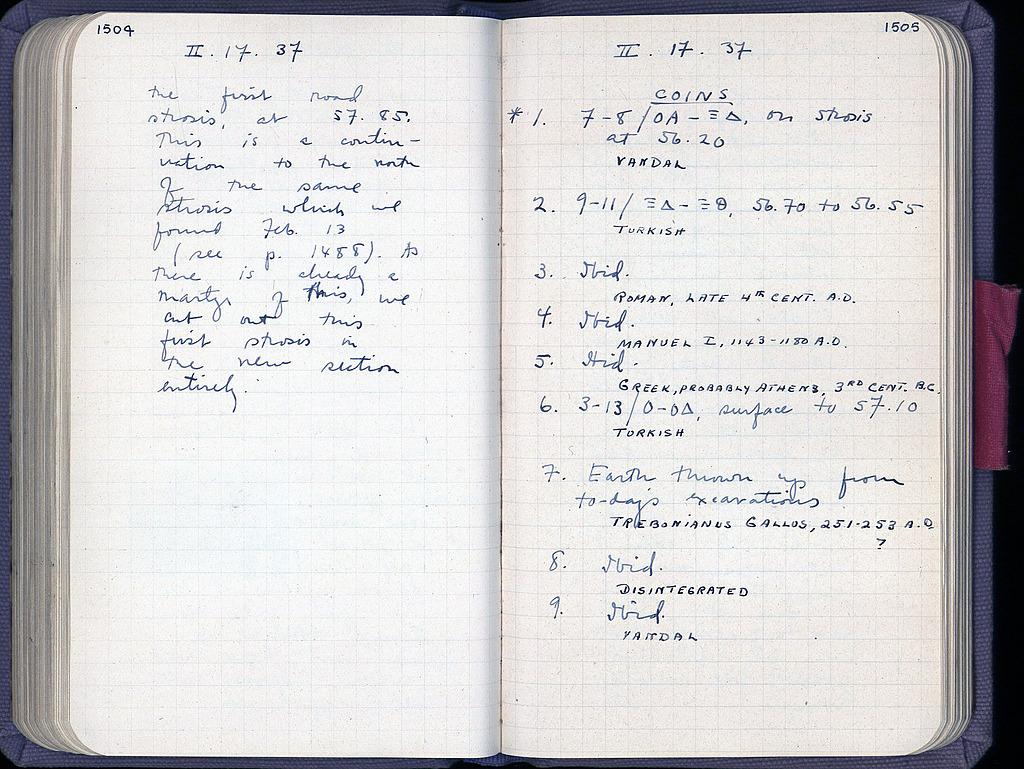 1504
II. 17. 37
the first road
strosis, at 57.85.
This is a contin-
uation to the north
of the same
strosis which we
found Feb. 13
(see p. 1488). As
there is already a
martyr of this, we
cut out this
first strosis in
the new section
entirely.
1505
II. 17. 37
COINS
* 1. 7-8/ΟΑ-ΞΔ, on strosis
at 56.20
VANDAL
2. 9-11/ΞΔ-ΞΘ, 56.70 to 56.55
TURKISH
3. Ibid.
ROMAN, LATE 4TH CENT. A.D.
4. Ibid.
MANUEL I, 1143-1180 A.D.
5. Ibid.
GREEK, PROBABLY ATHENS, 3RD CENT. B.C.
6. 3-13/Ο-ΟΔ, surface to 57.10
TURKISH
7. Earth thrown up from
to-day's excavations
TREBONIANUS GALLUS, 251-253 A.D.
?
8. Ibid.
DISINTEGRATED
9. Ibid.
VANDAL